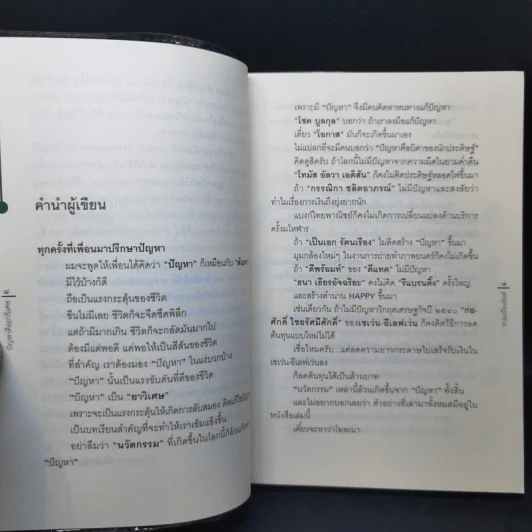 คำนำผู้เขียน
ทุกครั้งที่เพื่อนมาปรึกษาปัญหา
ผมจะพูดให้เพื่อนได้คิดว่า "ปัญหา" ก็เหมือนกับ
มีไว้บ้างก็ดี
ถือเป็นแรงกระตุ้นของชีวิต
ขืนไม่มีเลย ชีวิตก็จะจืดชืดพิลึก
แต่ถ้ามีมากเกิน ชีวิตก็จะกลัดมันมากไป
ต้องมีแต่พอดี แค่พอให้เป็นสีสันของชีวิต
ที่สำคัญ เราต้องมอง "ปัญหา" ในแง่บวกบ้าง
"ปัญหา" นั้นเป็นแรงขับดันที่ดีของชีวิต
"ปัญหา" เป็น "ยาวิเศษ"
เพราะจะเป็นแรงกระตุ้นให้เกิดการลับสมอง
เป็นบทเรียนสำคัญที่จะทำให้เราเข้มแข็งขึ้น
อย่าลืมว่า "นวัตกรรม" ที่เกิดขึ้นในโลกนี้
"ปัญหา"
เพราะมี "ปัญหา" จึงมีคนคิดหาหนทางแก้ปัญหา
"โชค บูลกุล" บอกว่า ถ้าเราลงมือแก้ปัญหา
เดี๋ยว "โอกาส" มันก็จะเกิดขึ้นมาเอง
ไม่แปลกที่จะมีคนบอกว่า "ปัญหาคือบิดาของนักประดิษฐ์"
คิดดูสิครับ ถ้าโลกนี้ไม่มีปัญหาจากความมืดในยามค่ำคืน
"โทมัส อัลวา เอดิสัน" ก็คงไม่คิดประดิษฐ์หลอดไฟขึ้นมา
ถ้า "กรรณิกา ชลิตอาภรณ์" ไม่มีปัญหาและสงสัยว่า
ทำไมเรื่องการเงินถึงยุ่งยากนัก
แบงก์ไทยพาณิชย์ก็คงไม่เกิดการเปลี่ยนแปลงด้านบริการ
ครั้งมโหฬาร
ถ้า "เป็นเอก รัตนเรือง" ไม่คิดสร้าง "ปัญหา" ขึ้นมา
มุมกล้องใหม่ๆ ในงานการถ่ายทำภาพยนตร์ก็คงไม่เกิดขึ้น
ถ้า "ดีพร้อมท์" ของ "ดีแทค" ไม่มีปัญหา
"ธนา เธียรอัจฉริยะ" คงไม่คิด "รีแบรนดิ้ง" ครั้งใหญ่
และสร้างตำนาน HAPPY ขึ้นมา
เช่นเดียวกัน ถ้าไม่มีปัญหาวิกฤตเศรษฐกิจปี ๒๕๔๐ "ก่อ-
ศักดิ์ ไชยรัศมีศักดิ์" ของเซเว่น-อีเลฟเว่น ก็คงคิดวิธีการลด
ต้นทุนแบบใหม่ไม่ได้
เชื่อไหมครับ... แค่ลดความยาวกระดาษใบเสร็จรับเงินใน
เซเว่น-อีเลฟเว่นลง
ก็ลดต้นทุนได้เป็นล้านบาท
"นวัตกรรม" เหล่านี้ล้วนเกิดขึ้นจาก "ปัญหา" ทั้งสิ้น
และไม่อยากบอกเลยว่า ตัวอย่างที่เล่ามาทั้งหมดมีอยู่ใน
หนังสือเล่มนี้
เดี๋ยวจะหาว่าโฆษณา